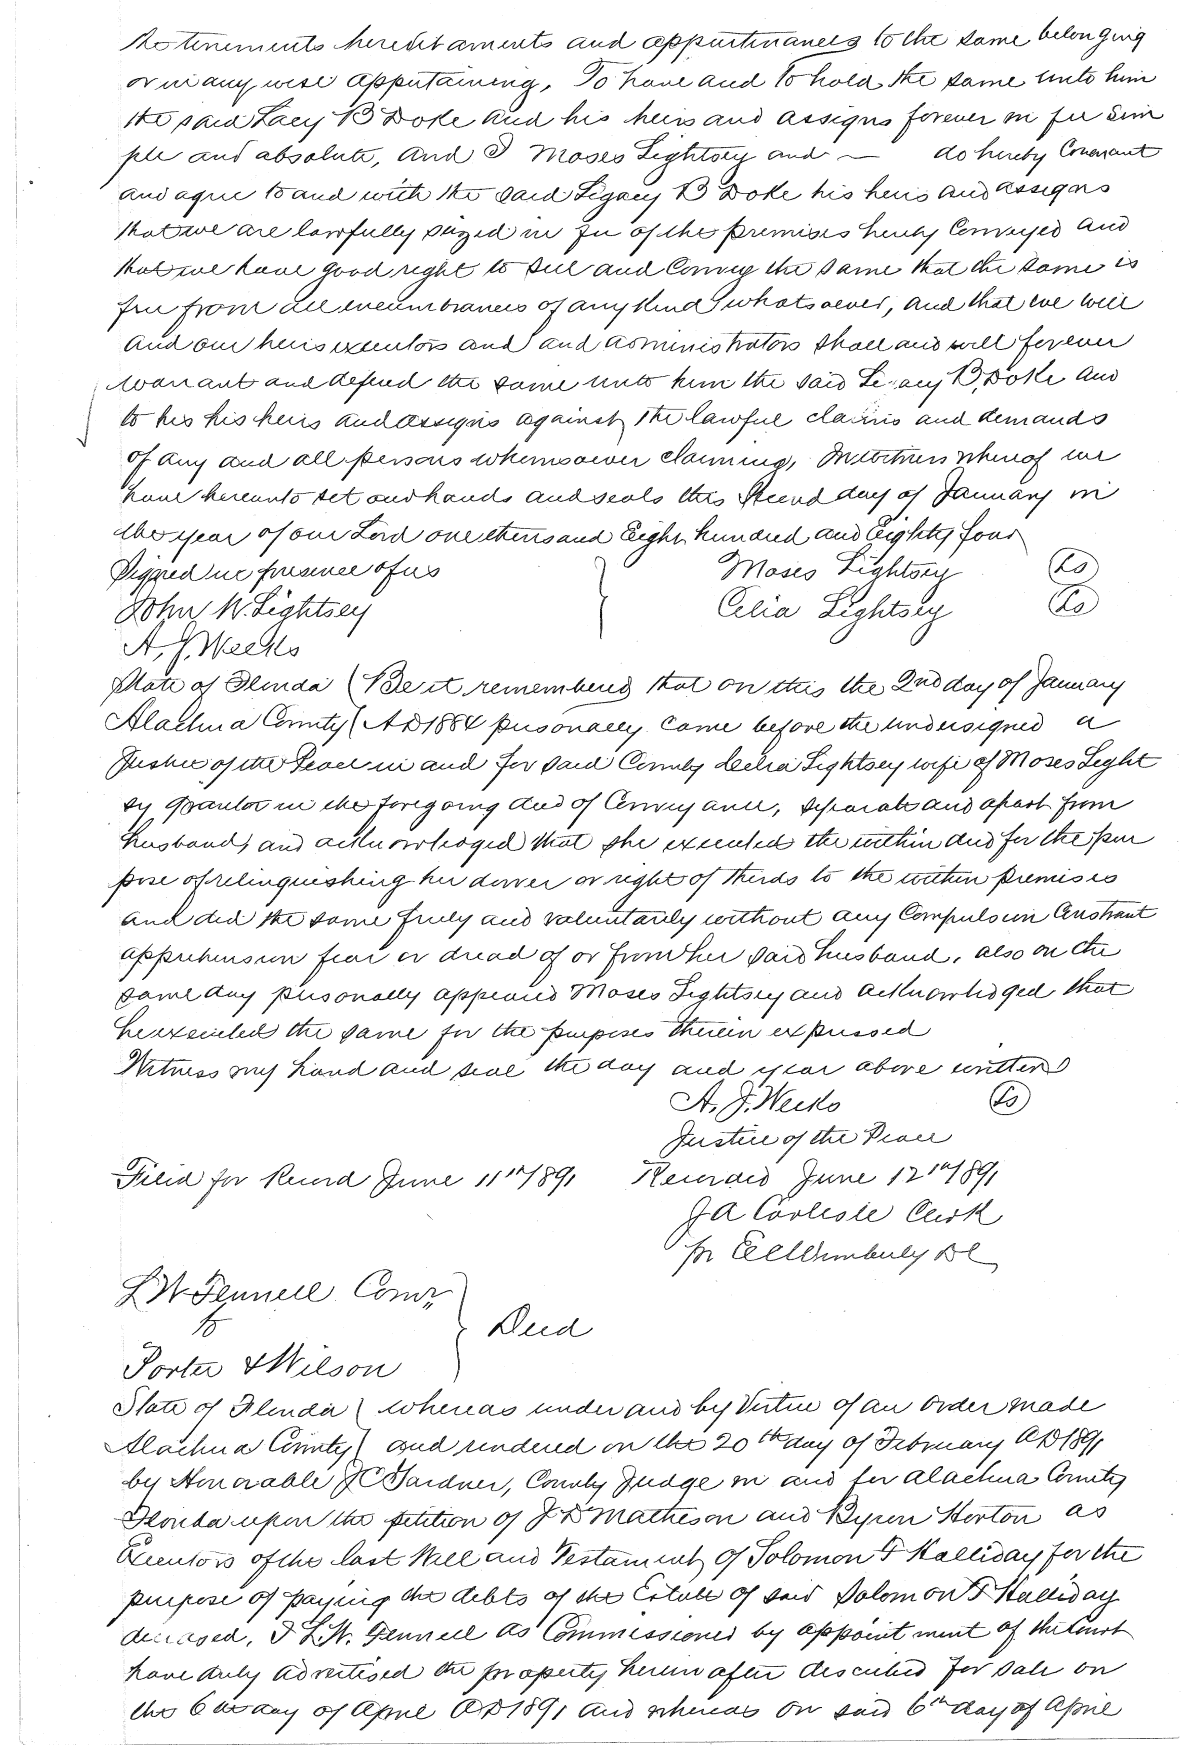 the tenements hereditaments and appurtinances to the same belonging
or in any wise appurtaining, To have and to hold the same unto him
the said Lacy B Doke and his heirs and assigns forever in fee Sim
ple and absolute, and I Moses Lightsey and — do hereby Covenant
and agree to and with the said Legacy B Doke his heirs and assigns
that we are lawfully seized in fee of the premises hereby Conveyed and
that we have good right to sell and Convey the same that the same is
free from all incumbrances of any kind whatsoever, and that we will
and our heirs executors and and administrators shall and will forever
warrant and defend the same unto him the said Legacy B, Doke and
to his his heirs and assigns against the lawful claims and demands
of any and all persons whomsoever claiming, In witness whereof we
have hereunto set our hands and seals this Second day of January in
the year of our Lord one thousand Eight hundred and Eighty four
Signed in presence of us } Moses Lightsey Ls
John W. Lightsey Celia Lightsey Ls
A. J. Weeks
State of Florida ( Be it remembered that on this the 2nd day of January
Alachua County ( AD 1884 personally came before the undersigned a
Justice of the Peace in and for said County Celia Lightsey wife of Moses Light
sy grantor in the foregoing deed of Conveyance, separate and apart from
husband, and acknowledged that she executed the within deed for the pur
pose of relinquishing her dower or right of therds to the within premises
and did the same freely and voluntarily without any Compulsion Constraint
apprehension fear or dread of or from her said husband, also on the
same day personally appeared Moses Lightsey and acknowledged that
he executed the same for the purposes therein expressed
Witness my hand and seal the day and year above written
A. J. Weeks Ls
Justice of the Peace
Filed for Record June 11th 1891 Recorded June 12th 1891
J A Carlisle Clerk
pr Wimberly DC
L W Fennell Comr
to } Deed
Porter & Wilson
State of Florida ( whereas under and by Virtue of an order made
Alachua County ( and rendered on the 20th day of February AD 1891
by Honorable J C Gardner, County Judge in and for Alachua County
Florida upon the petition of J D Matheson and Byron Horton as
Executors of the last Will and Testament of Solomon F Halliday for the
purpose of paying the debts of the Estate of said Solomon F Halliday
deceased, I L. W. Fennell as Commissioned by appointment of the Court
have duly advertised the property herein after described for sale on
the 6th day of April AD 1891 and whereas on said 6th day of April